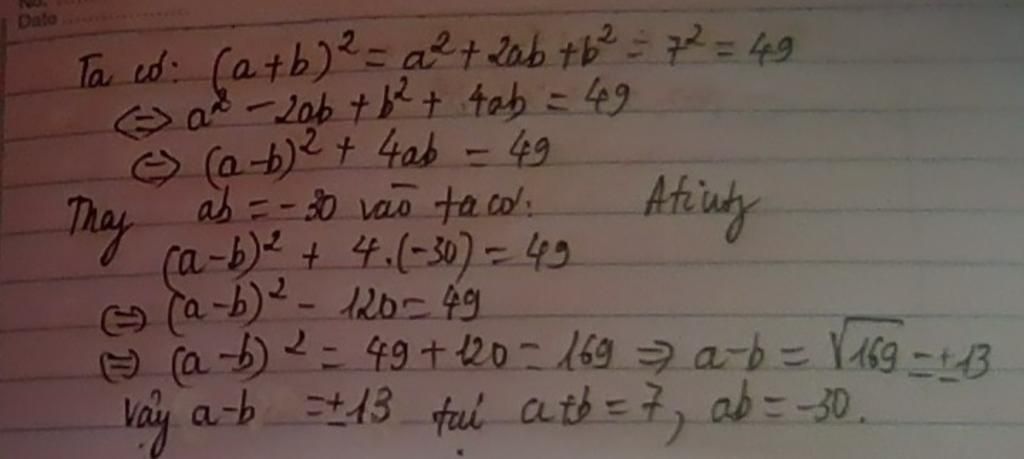 No.
Date
Ta có: (a+b)² = a² + 2ab + b² = 7² = 49
⇔ a² - 2ab + b² + 4ab = 49
⇔ (a-b)² + 4ab = 49
Thay ab = -30 vào ta có:
(a-b)² + 4.(-30) = 49
⇔ (a-b)² - 120 = 49
⇔ (a-b)² = 49 + 120 = 169 ⇒ a-b = √169 = ±13
Vậy a-b = ±13 tại a+b = 7, ab = -30.